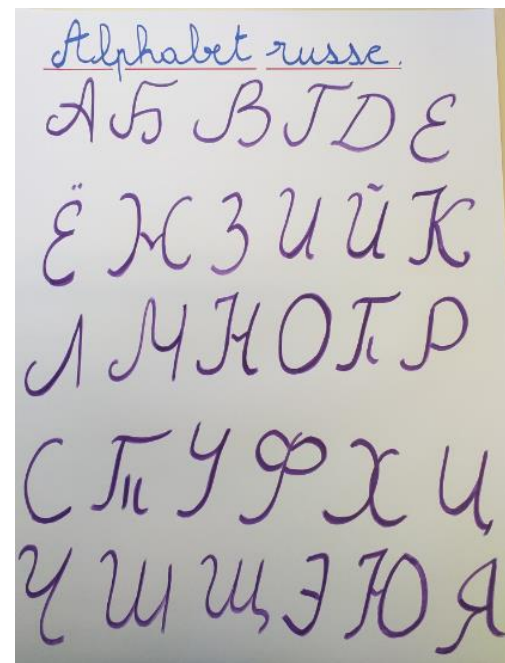 Alphabet russe.
А Б В Г Д Е
Ё Ж З И Й К
Л М Н О П Р
С Т У Ф Х Ц
Ч Ш Щ Э Ю Я